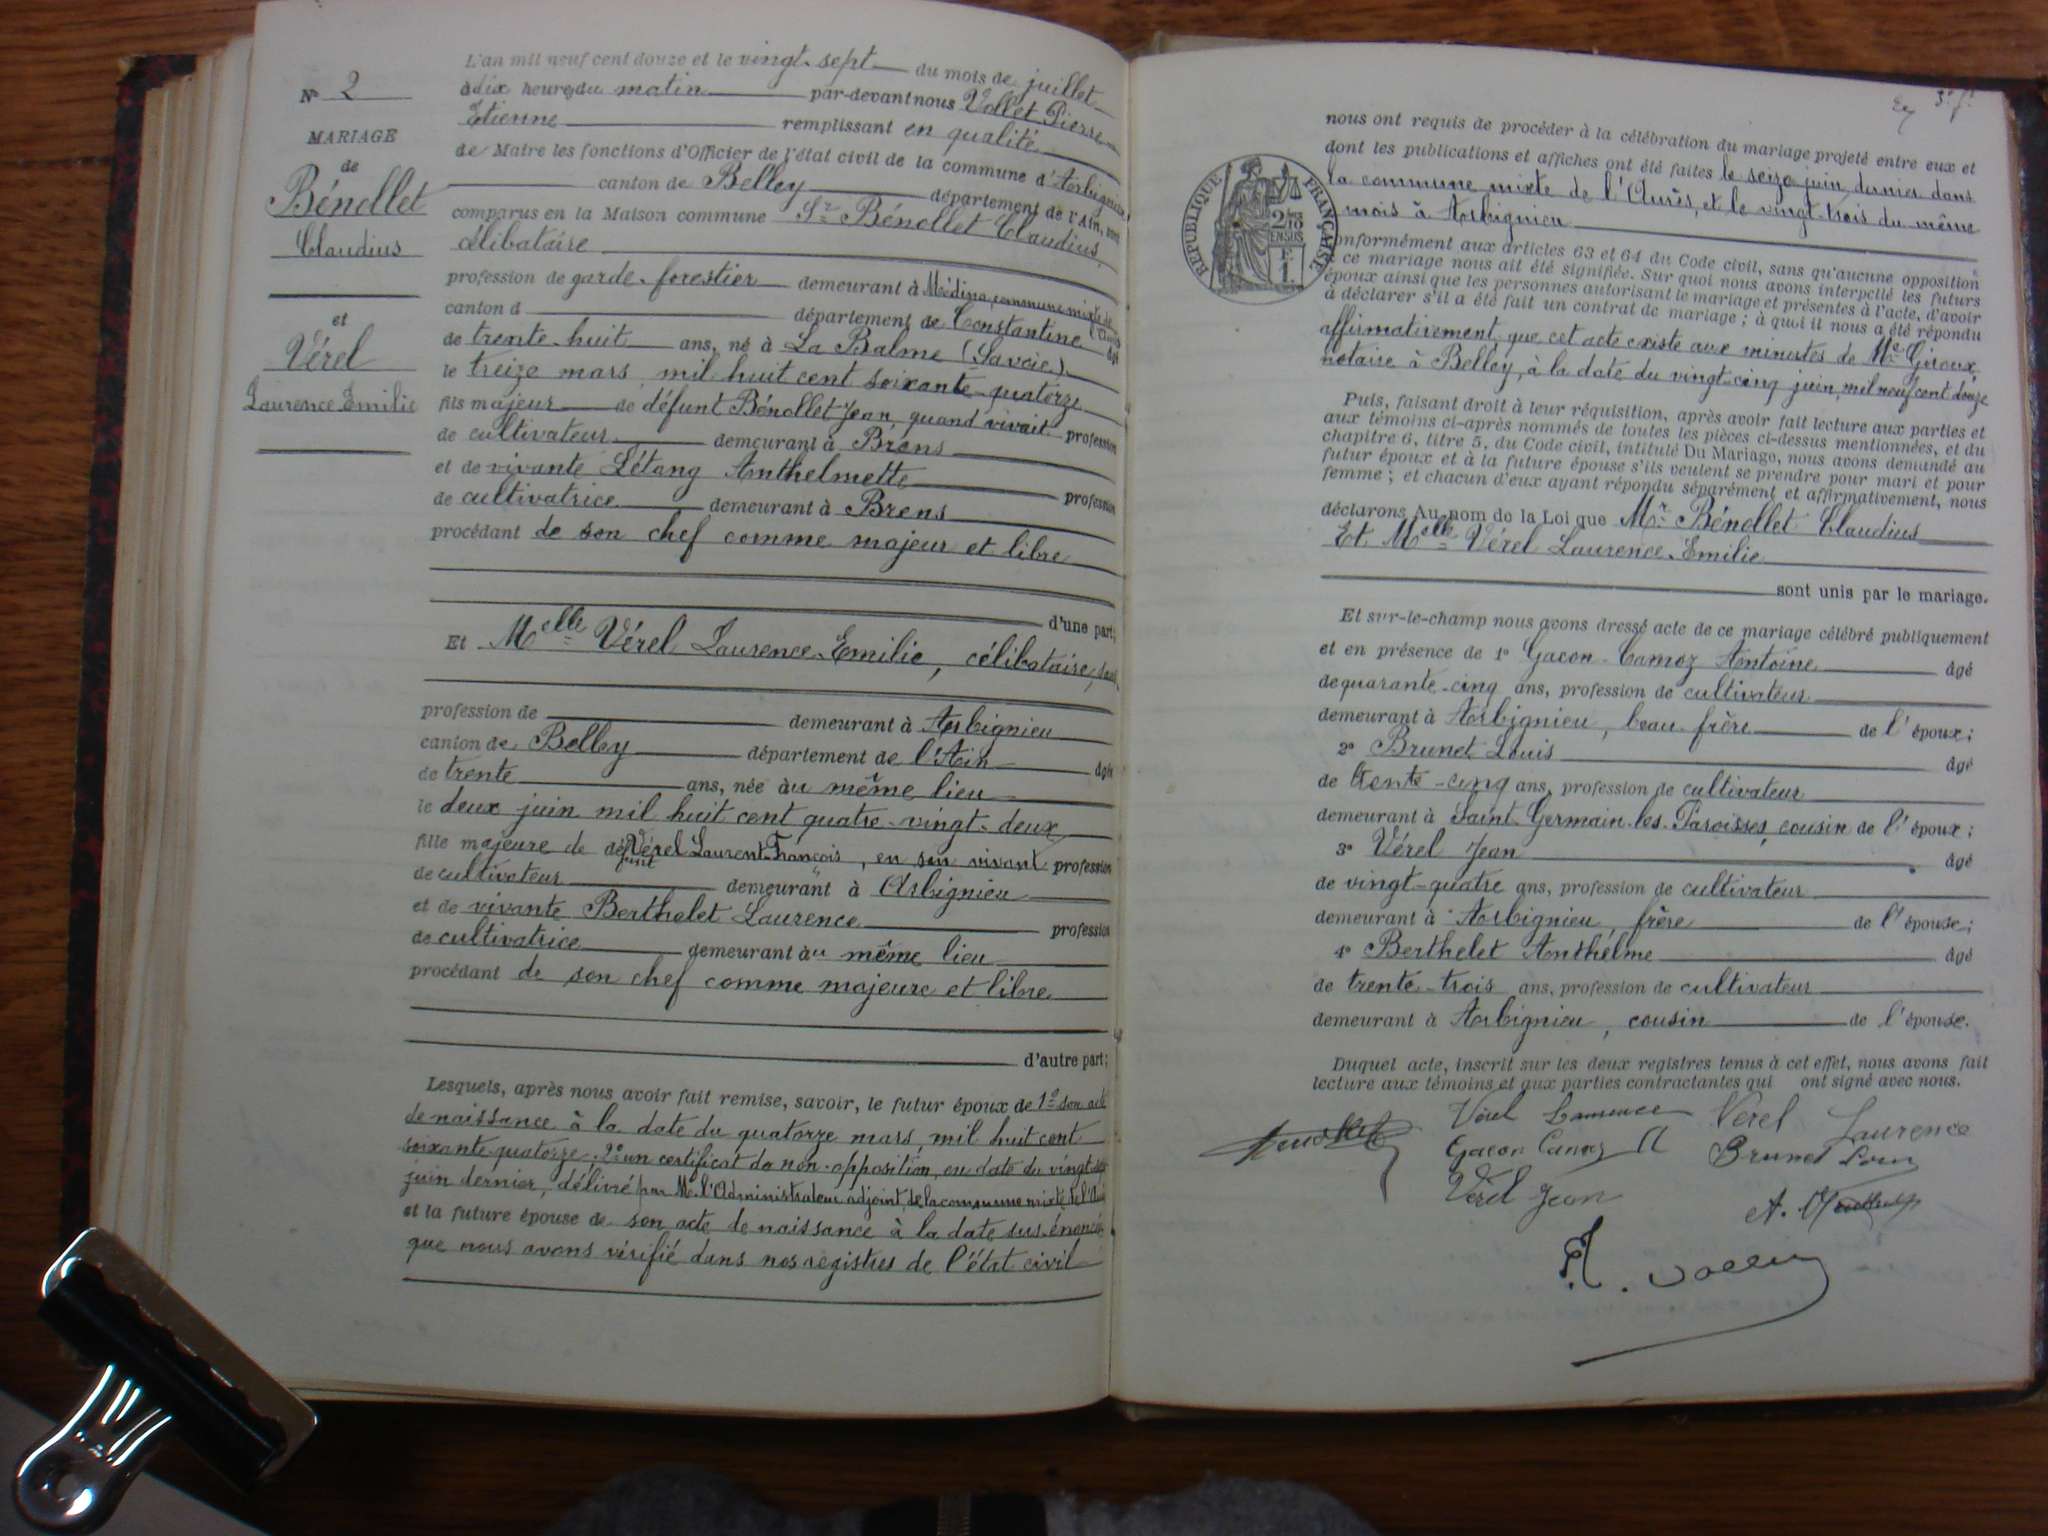 Nº 2
MARIAGE
de
Bénollet
Claudius
et
Vérel
Laurence Emilie
L'an mil neuf cent douze et le vingt-sept du mois de juillet
à dix heures du matin par-devant nous Vollet Pierre
Etienne remplissant en qualité
de Maire les fonctions d'Officier de l'état civil de la commune d'Arbignieu
canton de Belley département de l'Ain, sont
comparus en la Maison commune Sr Bénollet Claudius,
célibataire
profession de garde-forestier demeurant à Médina, commune mixte de
l'Aurès
canton d département de Constantine âgé
de trente-huit ans, né à La Balme (Savoie)
le treize mars mil huit cent soixante-quatorze
fils majeur de défunt Bénollet Jean, quand vivait profession
de cultivateur demeurant à Brens
et de vivante Létang Anthelmette profession
de cultivatrice demeurant à Brens
procédant de son chef comme majeur et libre
d'une part;
Et Melle Vérel Laurence-Emilie, célibataire, sans
profession de demeurant à Arbignieu
canton de Belley département de l'Ain âgée
de trente ans, née au même lieu
le deux juin mil huit cent quatre-vingt-deux
fille majeure de défunt Vérel Laurent-François, en son vivant profession
de cultivateur demeurant à Arbignieu
et de vivante Berthelet Laurence profession
de cultivatrice demeurant au même lieu
procédant de son chef comme majeure et libre
d'autre part;
Lesquels, après nous avoir fait remise, savoir, le futur époux de 1º son acte
de naissance à la date du quatorze mars mil huit cent
soixante-quatorze 2º un certificat de non-opposition, en date du vingt-six
juin dernier, délivré par M. l'Administrateur adjoint de la commune mixte de l'Aurès
et la future épouse de son acte de naissance à la date sus-énoncée
que nous avons vérifié dans nos registres de l'état civil
nous ont requis de procéder à la célébration du mariage projeté entre eux et
dont les publications et affiches ont été faites le seize juin dernier dans
la commune mixte de l'Aurès, et le vingt-trois du même
mois à Arbignieu
REPUBLIQUE FRANÇAISE
2/10
EN SUS
F.
1.
conformément aux articles 63 et 64 du Code civil, sans qu'aucune opposition
à ce mariage nous ait été signifiée. Sur quoi nous avons interpellé les futurs
époux ainsi que les personnes autorisant le mariage et présentes à l'acte, d'avoir
à déclarer s'il a été fait un contrat de mariage; à quoi il nous a été répondu
affirmativement que cet acte existe aux minutes de Me Giroux,
notaire à Belley, à la date du vingt-cinq juin, mil neuf cent douze
Puis, faisant droit à leur réquisition, après avoir fait lecture aux parties et
aux témoins ci-après nommés de toutes les pièces ci-dessus mentionnées, et du
chapitre 6, titre 5, du Code civil, intitulé Du Mariage, nous avons demandé au
futur époux et à la future épouse s'ils veulent se prendre pour mari et pour
femme; et chacun d'eux ayant répondu séparément et affirmativement, nous
déclarons Au nom de la Loi que Mr Bénollet Claudius
Et Melle Vérel Laurence-Emilie
sont unis par le mariage.
Et sur-le-champ nous avons dressé acte de ce mariage célébré publiquement
et en présence de 1º Gacon-Camoz Antoine âgé
de quarante-cinq ans, profession de cultivateur
demeurant à Arbignieu, beau-frère de l'époux;
2º Brunet Louis âgé
de trente-cinq ans, profession de cultivateur
demeurant à Saint-Germain-les-Paroisses, cousin de l'époux;
3º Vérel Jean âgé
de vingt-quatre ans, profession de cultivateur
demeurant à Arbignieu, frère de l'épouse;
4º Berthelet Anthelme âgé
de trente-trois ans, profession de cultivateur
demeurant à Arbignieu, cousin de l'épouse.
Duquel acte, inscrit sur les deux registres tenus à cet effet, nous avons fait
lecture aux témoins et aux parties contractantes qui ont signé avec nous.
Vérel Laurence Verel Laurence
Gacon Camoz A Brunet Louis
Vérel Jean